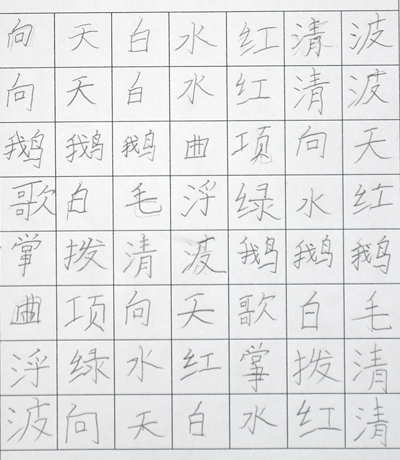 向天白水红清波
向天白水红清波
鹅鹅鹅曲项向天
歌白毛浮绿水红
掌拨清波鹅鹅鹅
曲项向天歌白毛
浮绿水红掌拨清
波向天白水红清